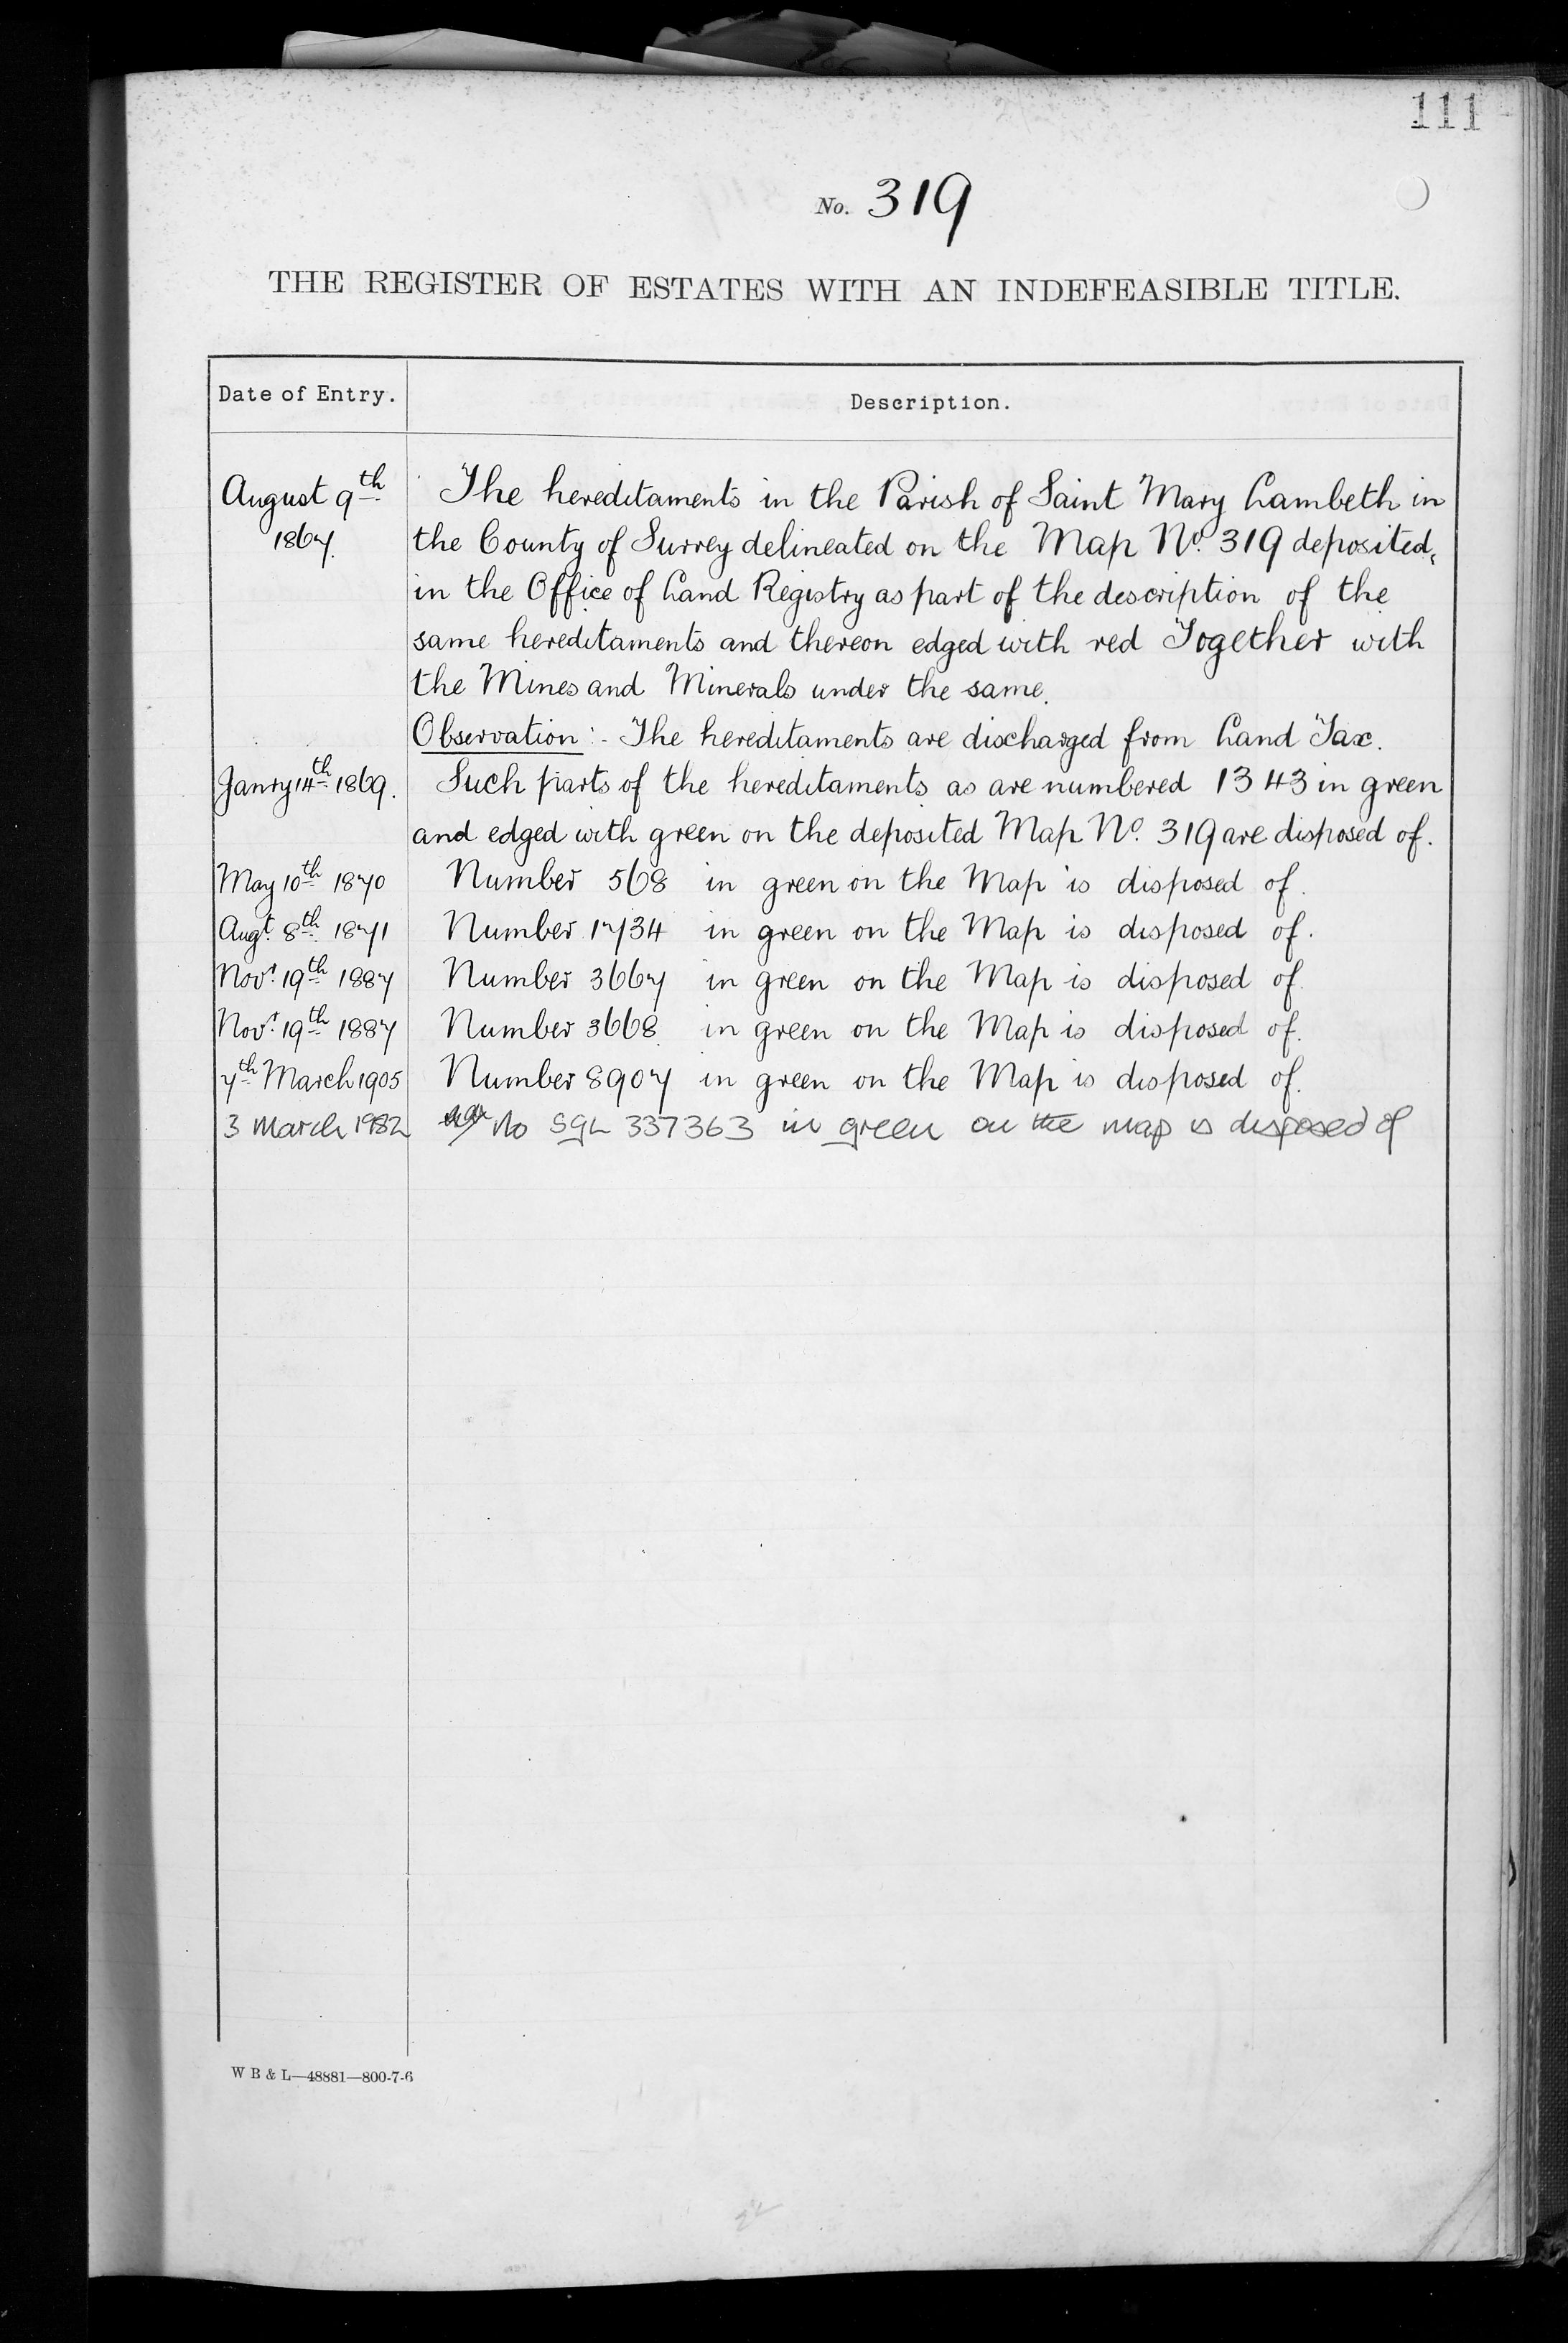 111
No. 319
THE REGISTER OF ESTATES WITH AN INDEFEASIBLE TITLE.
Date of Entry. Description.
August 9th The hereditaments in the Parish of Saint Mary Lambeth in
1867. the County of Surrey delineated on the Map No. 319 deposited,
in the Office of Land Registry as part of the description of the
same hereditaments and thereon edged with red Together with
the Mines and Minerals under the same.
Observation :- The hereditaments are discharged from Land Tax.
Janry 14th 1869. Such parts of the hereditaments as are numbered 1343 in green
and edged with green on the deposited Map No. 319 are disposed of.
May 10th 1870 Number 568 in green on the Map is disposed of.
Augt. 8th 1871 Number 1734 in green on the Map is disposed of.
Novr. 19th 1887 Number 3667 in green on the Map is disposed of.
Novr. 19th 1887 Number 3668 in green on the Map is disposed of.
7th March 1905 Number 8907 in green on the Map is disposed of.
3 March 1982 No SGL 337363 in green on the map is disposed of
W B & L—48881—800-7-6